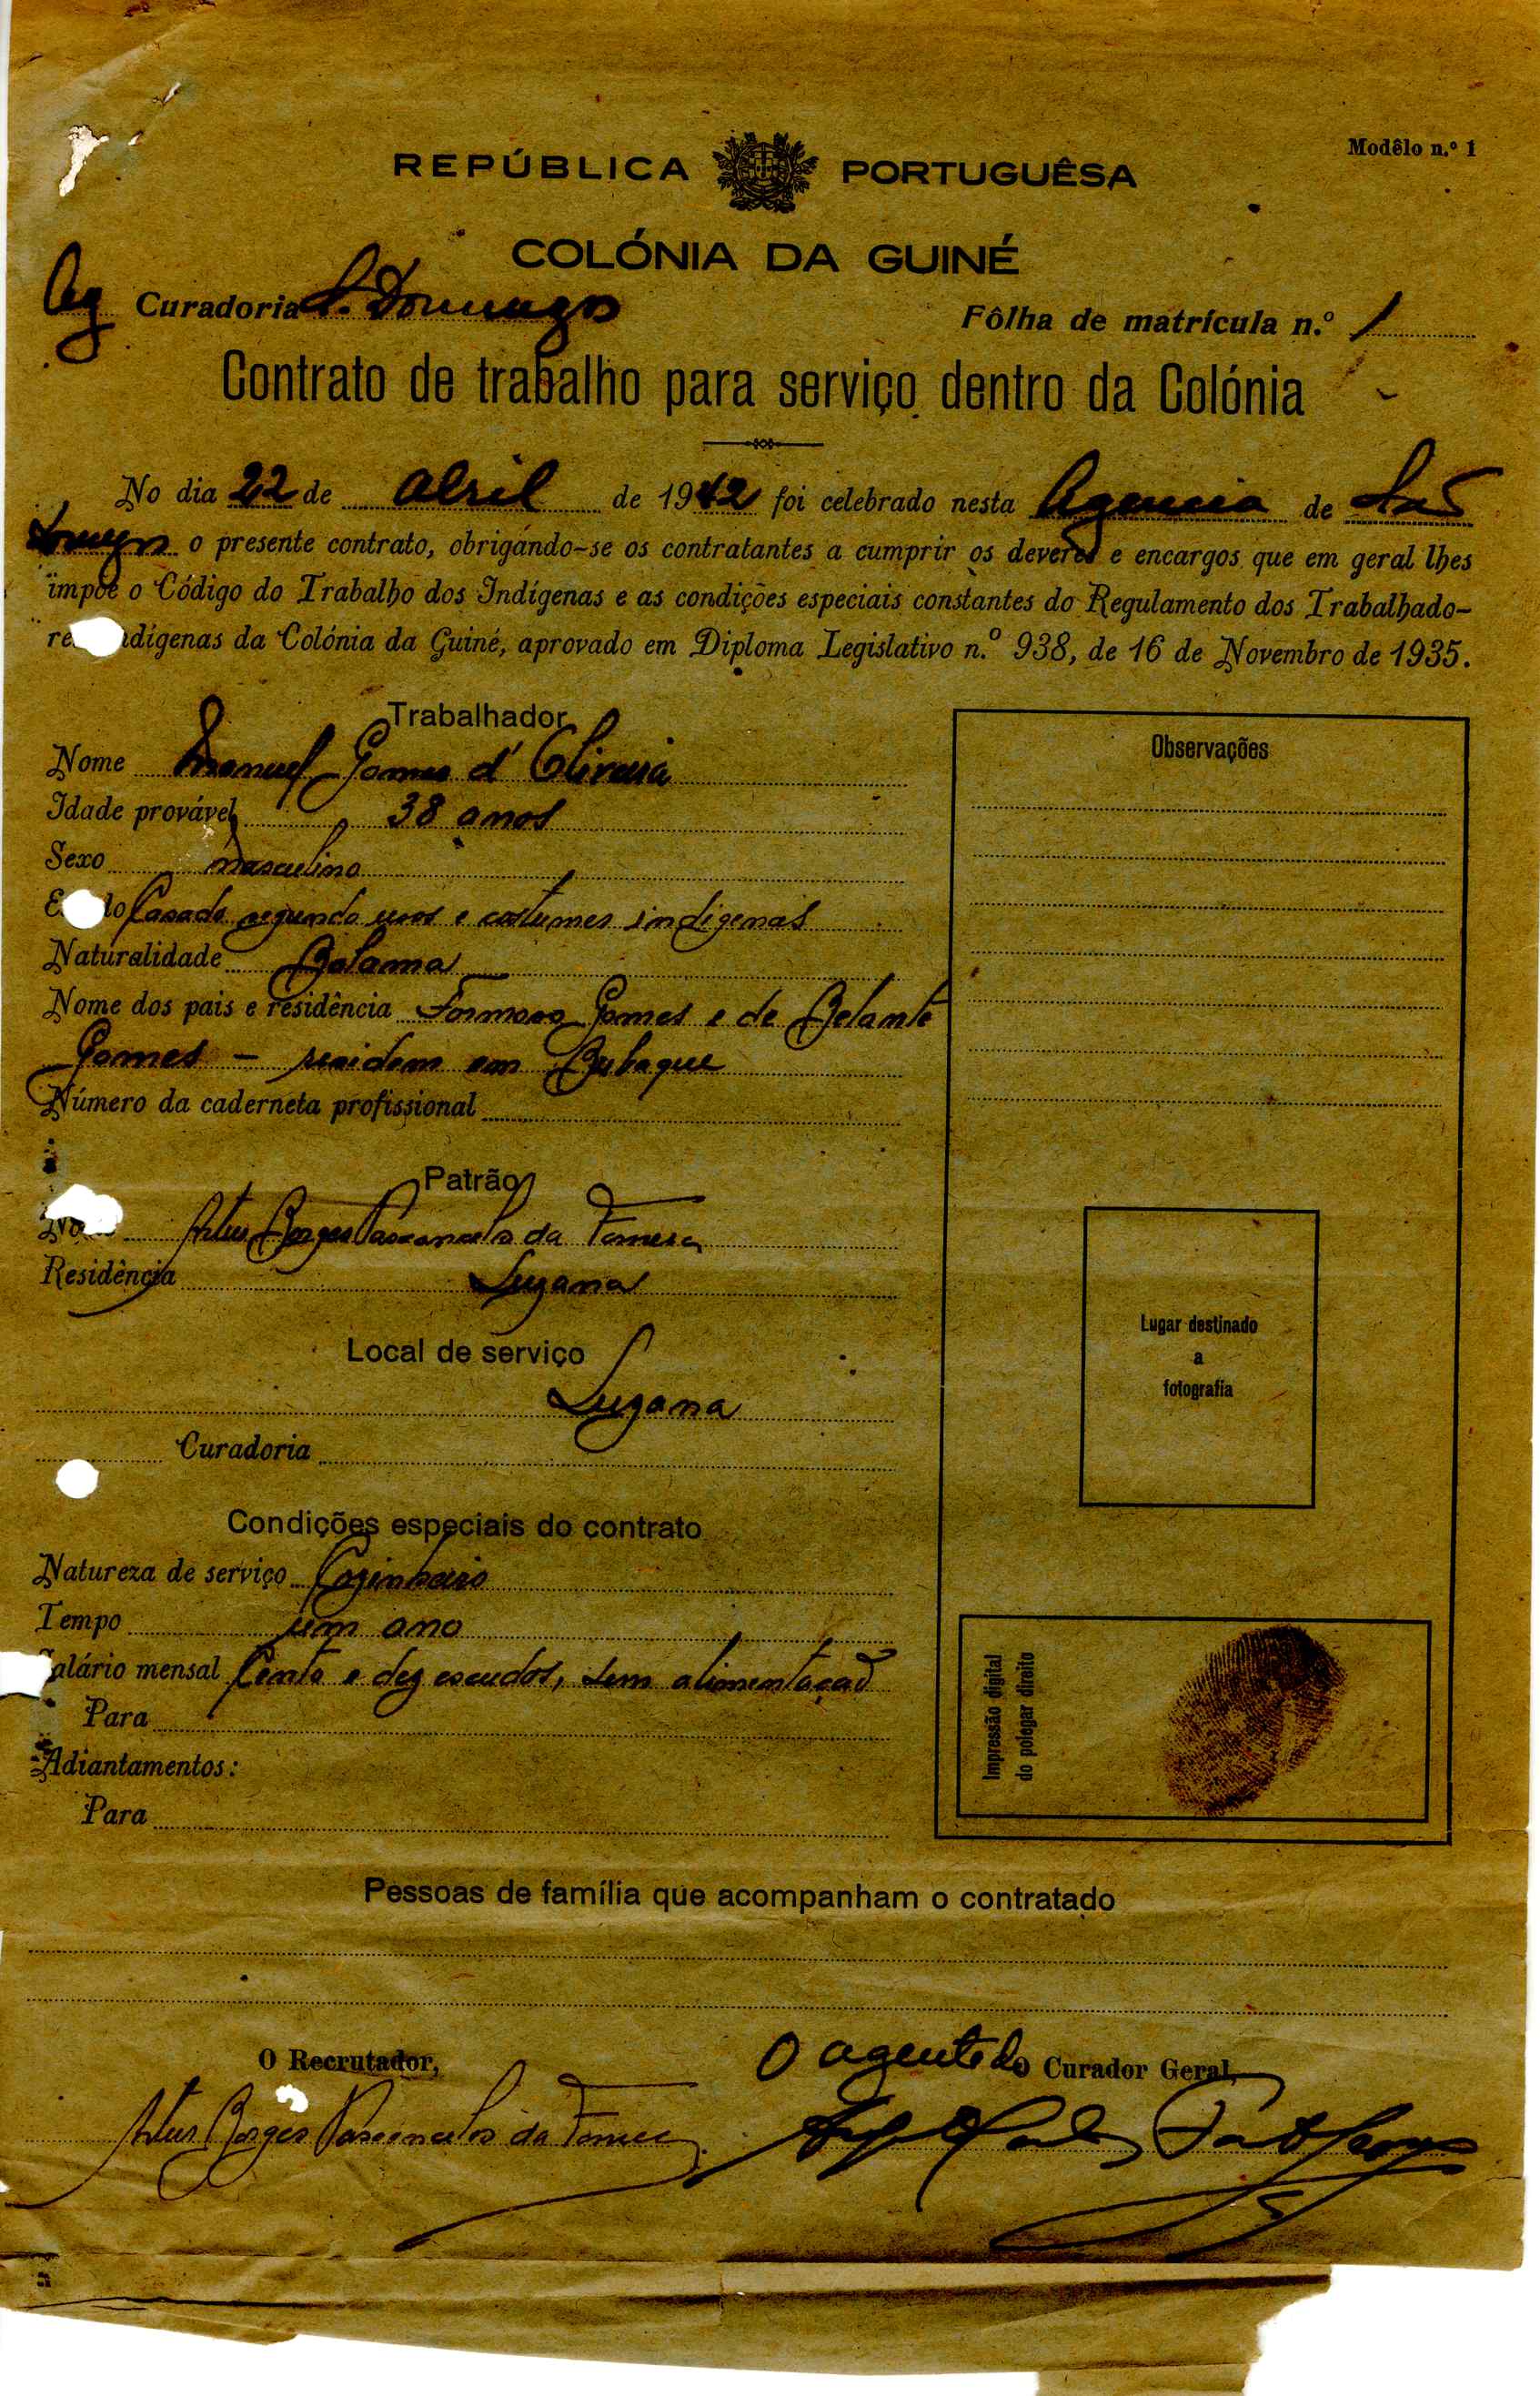 Modêlo n.º 1
REPÚBLICA PORTUGUÊSA
COLÓNIA DA GUINÉ
Ag Curadoria S. Domingos
Fôlha de matrícula n.º 1
Contrato de trabalho para serviço dentro da Colónia
No dia 22 de Abril de 1942 foi celebrado nesta Agencia de São
Domingos o presente contrato, obrigando-se os contratantes a cumprir os deveres e encargos que em geral lhes
impõe o Código do Trabalho dos Indígenas e as condições especiais constantes do Regulamento dos Trabalhado-
re dígenas da Colónia da Guiné, aprovado em Diploma Legislativo n.º 938, de 16 de Novembro de 1935.
Trabalhador
Nome Manuel Gomes d'Oliveira
Idade provável 38 anos
Sexo masculino
E do Casado segundo usos e costumes indigenas
Naturalidade Bolama
Nome dos pais e residência Formoso Gomes e de Belante
Gomes - residem em Bubaque
Número da caderneta profissional
Patrão
No Artur Borges Vasconcelos da Fonseca
Residência Suzana
Local de serviço
Suzana
Curadoria
Condições especiais do contrato
Natureza de serviço Cozinheiro
Tempo um ano
alário mensal Cento e dez escudos, sem alimentação
Para
Adiantamentos:
Para
Observações
Lugar destinado
a
fotografia
Impressão digital
do polegar direito
Pessoas de família que acompanham o contratado
O Recrutador,
O agente do O Curador Geral,
Artur Borges Vasconcelos da Fonseca